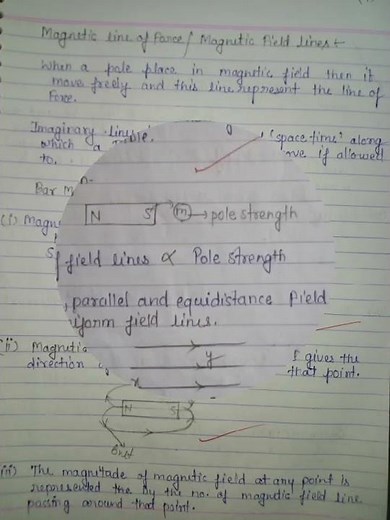 Magnetic line of Force / Magnetic Field lines
When a pole place in magnetic field then it
move freely and this line represent the line of
Force.
Imaginary
"space time" along
which a
if allowed
to.
Bar M
N S m → pole strength
(i) Magn
field lines ∝ Pole strength
parallel and equidistance Field
form field lines.
(ii) Magnetic
gives the
direction
that point.
y
x
N S
(iii) The magnitude of magnetic field at any point is
represented the by the no. of magnetic field line
passing around that point.